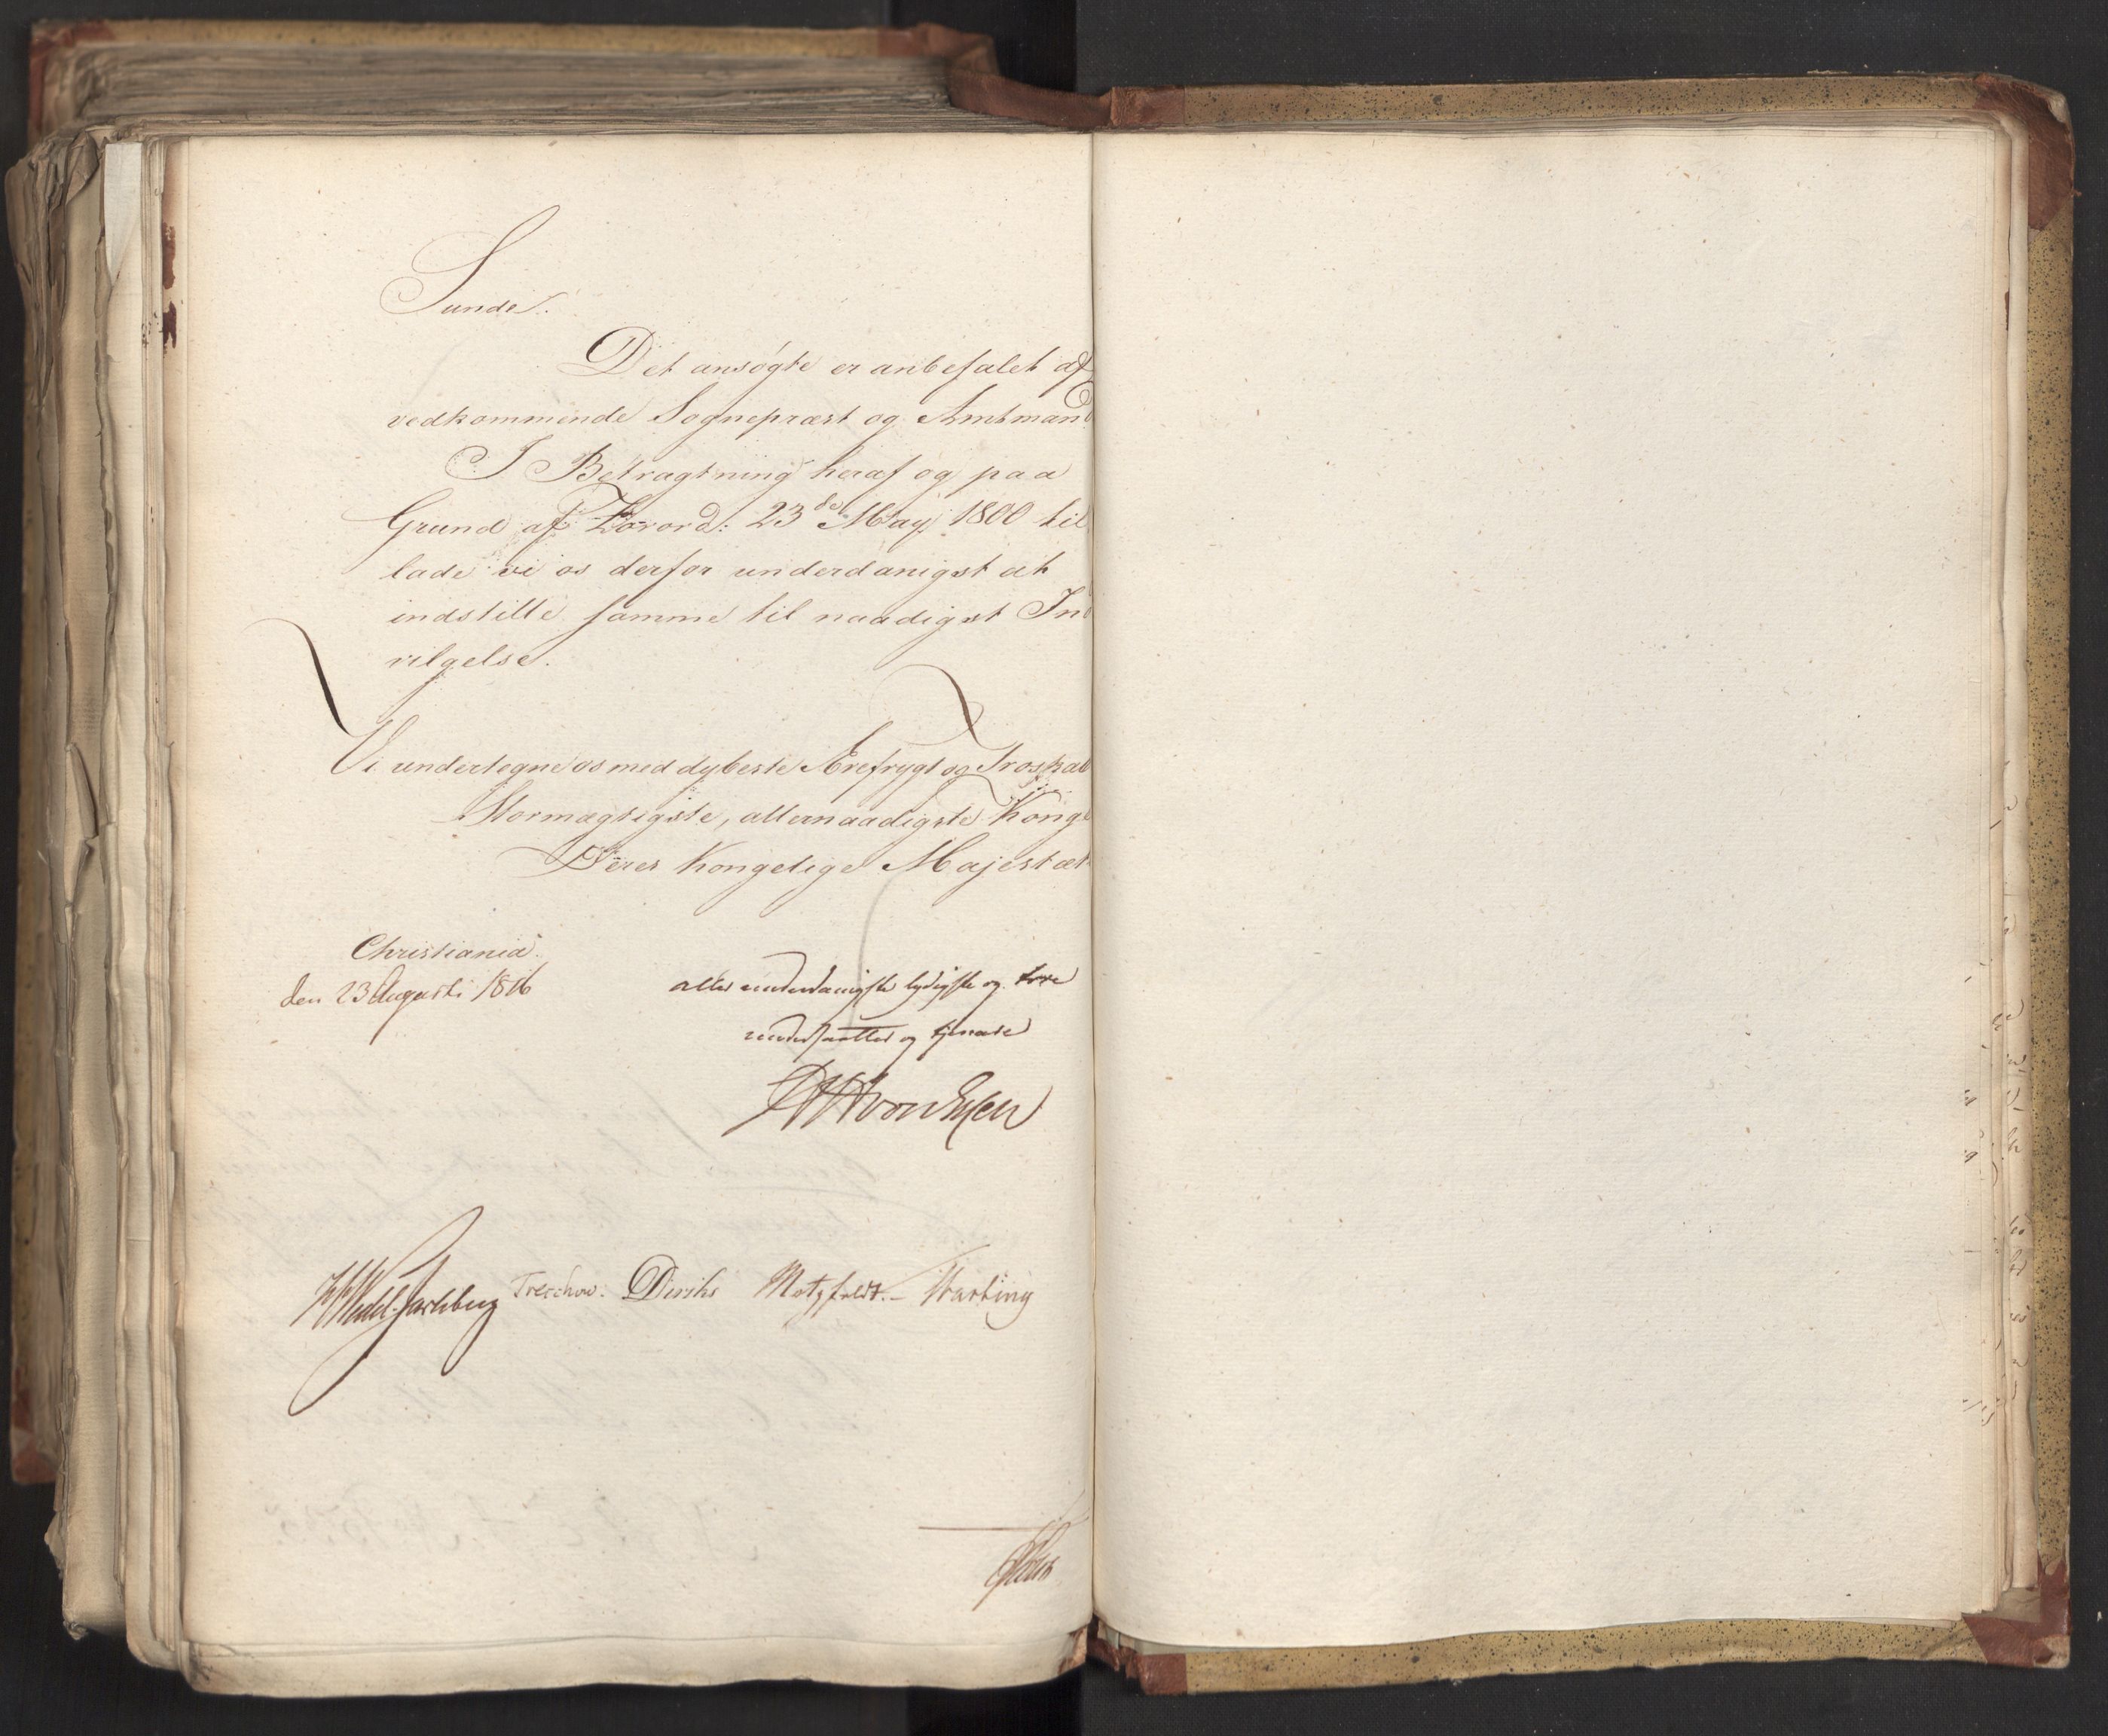 Sunde.
Det ansögte er anbefalet af
vedkommende Sognepræst og Amtmand
I Betragtning heraf og paa
Grund af Forord: 23de May 1800 til
lade vi os derfor underdanigst at
indstille samme til naadigst Ind
vilgelse.
Vi undertegne os med dybeste Ærefrygt og Troskab
Stormægtigste, allernaadigste Konge
Deres Kongelige Majestæt
Christiania
den 23 Augusti 1816
aller underdanigste lydigste og troe
undersaatter og tjenare
von Essen
Wedel-Jarlsberg Treschow. Diriks Motzfeldt. - Krafting